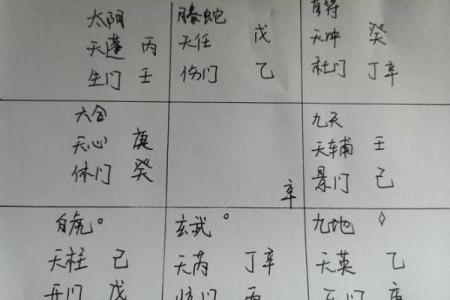 太阴
天蓬 丙
生门 壬
螣蛇
天任 戊
伤门 乙
直符
天冲 癸
杜门 丁辛
六合
天心 庚
休门 癸
辛
九天
天辅 壬
景门 己
白虎°
天柱 己
开门 戊
玄武°
天芮 丁辛
惊门 丙
九地
天英 乙
死门 庚